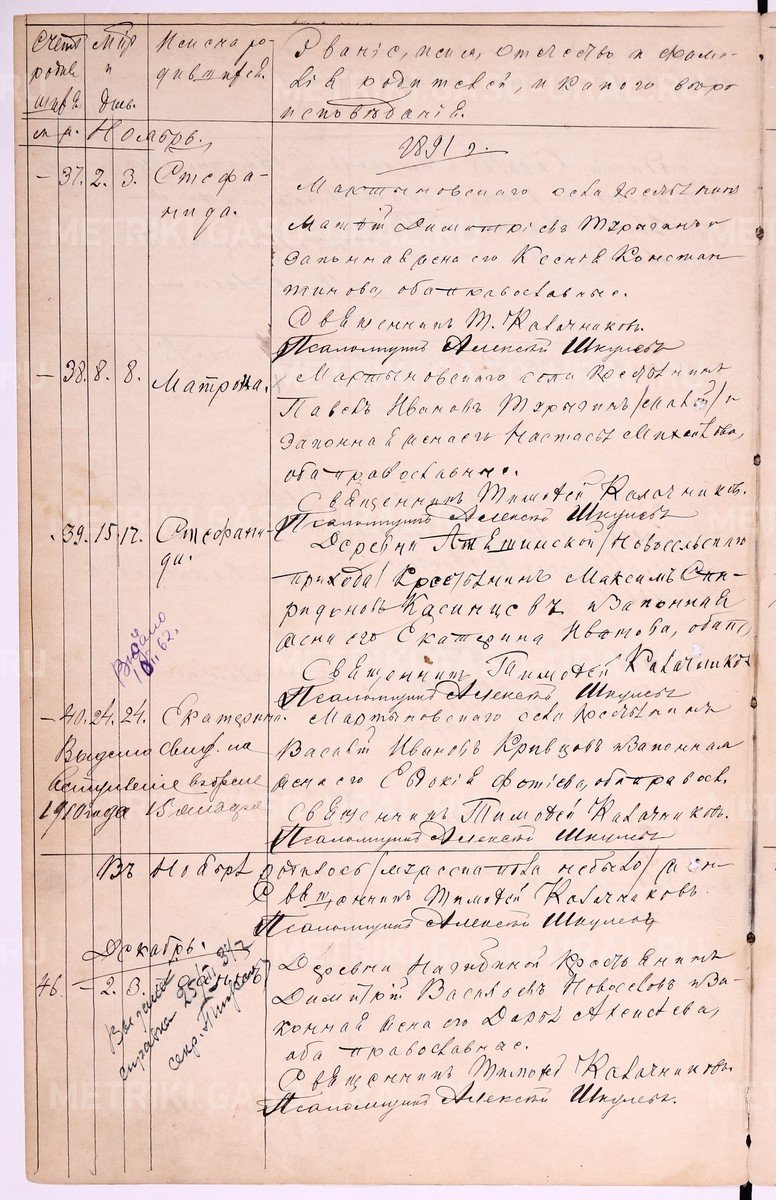 Счетъ родив шихся
Мѣс и день.
Имена ро-
дившихся.
Званіе, имя, отчество и фами-
лія родителей, и какого вѣро
исповѣданія.
м. ж. Ноябрь.
1891 г.
— 37. 2. 3. Стефа-
нида.
Мартыновскаго села крестьянинъ
Матѳѣй Димитріевъ и
законная жена его Ксенія Констан
тинова, оба православные.
Священникъ Т. Калачниковъ.
Псаломщикъ Алексѣй Шкулевъ
— 38. 8. 8. Матрона.
Мартыновскаго села крестьянинъ
Павелъ Ивановъ и
законная жена его Настасья Михеилова,
оба православные.
Священникъ Тимоѳей Калачниковъ.
Псаломщикъ Алексѣй Шкулевъ
39. 15. 17. Стефани-
да.
Деревни /Новосельскаго
прихода/ крестьянинъ Максимъ Спи-
ридоновъ Касинцевъ и законная
жена его Екатерина Иванова, оба пр,
Священникъ Тимоѳей Калачниковъ
Псаломщикъ Алексѣй Шкулевъ
Выдано
62.
— 40. 24. 24. Екатерина.
Мартыновскаго села крестьянинъ
Василій Ивановъ Кривцовъ и законная
жена его Евдокія Фотіева, оба правосл.
Священникъ Тимоѳей Калачниковъ.
Псаломщикъ Алексѣй Шкулевъ
Выдано свид. на
вступленіе въ браке
1910 года 15
Въ Ноябрѣ родилось /мужескаго пола небыло/ жен-
Священникъ Тимоѳей Калачниковъ.
Псаломщикъ Алексѣй Шкулевъ
Декабрь.
46. — 2. 3.
Деревни Нагибиной крестьянинъ
Димитрій Васильевъ Новоселовъ и за-
конная жена его Дарья Алексѣева,
оба православные.
Священникъ Тимоѳей Калачниковъ.
Псаломщикъ Алексѣй Шкулевъ.
Выдана
справка 25
секр.